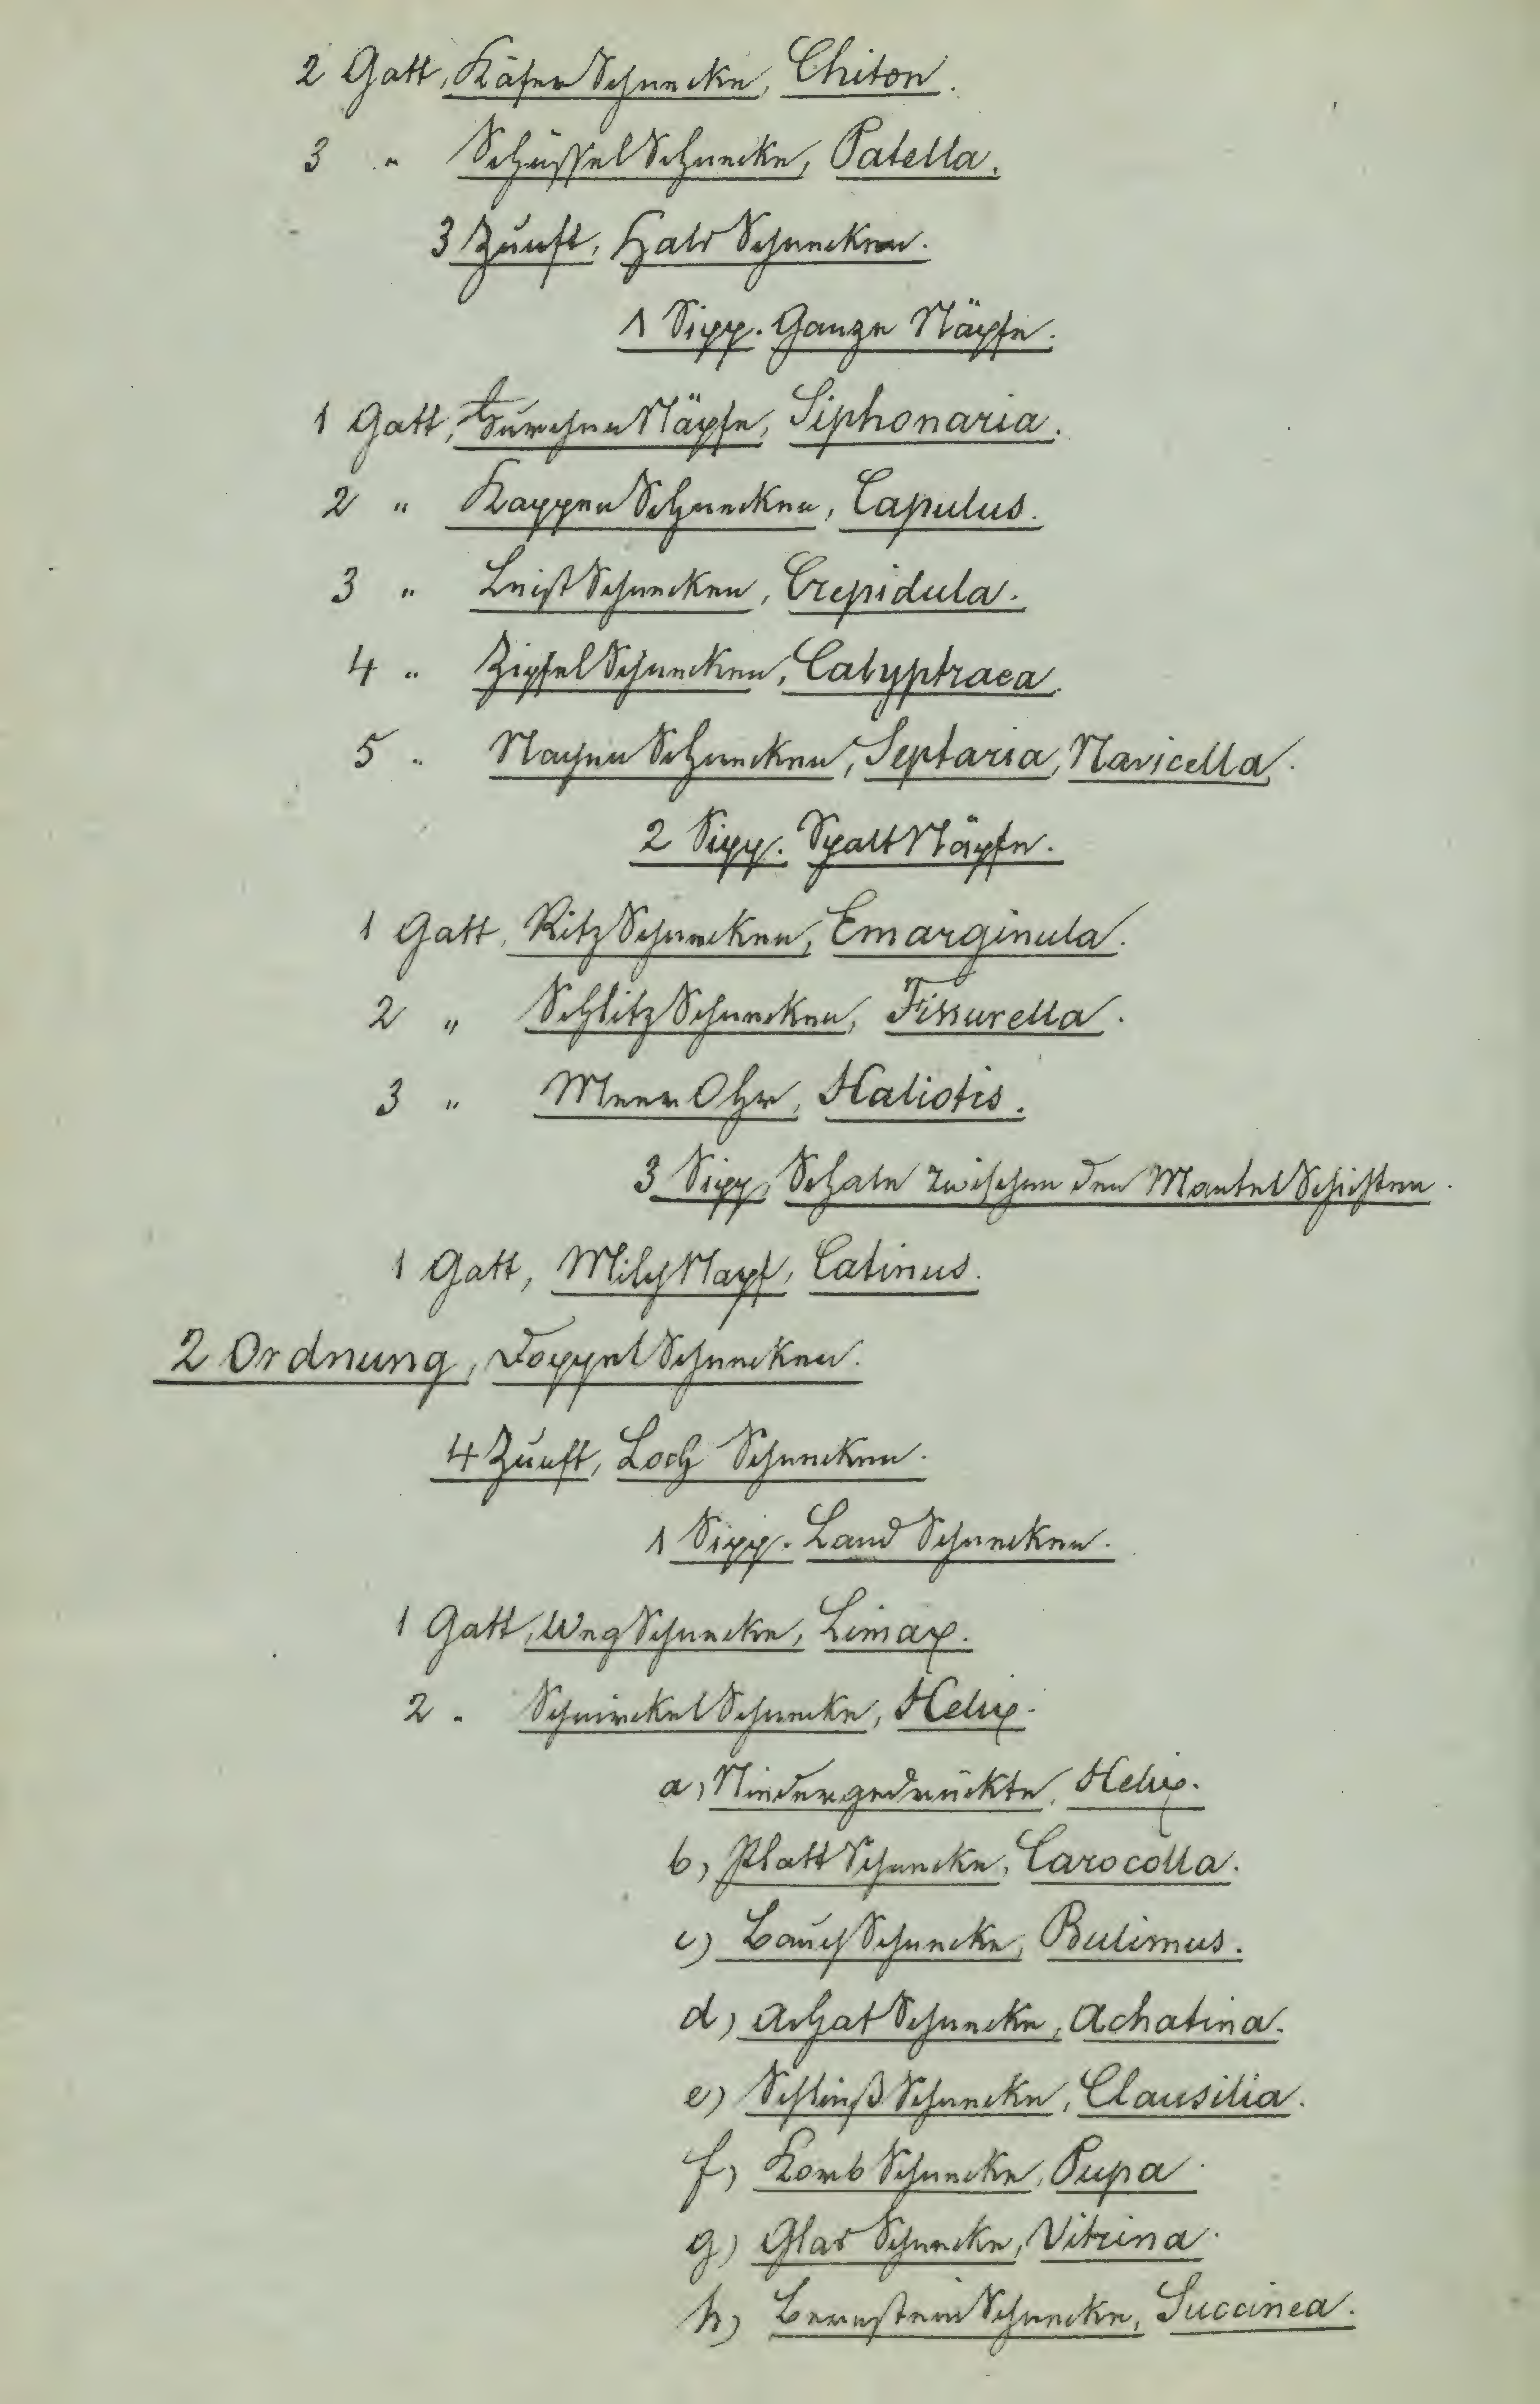 2 Gatt, KäferSchnecke, Chiton.
3 " SchüsselSchnecke, Patella.
3 Zunft, Hals Schnecken.
1 Sipp. Ganze Näpfe.
1 Gatt, FurchenNäpfe, Siphonaria.
2 " KappenSchnecken, Capulus.
3 " LeistSchnecken, Crepidula.
4 " ZipfelSchnecken, Calyptraea.
5 " NachenSchnecken, Septaria, Navicella.
2 Sipp. SpaltNäpfe.
1 Gatt, RitzSchnecken, Emarginula.
2 " SchlitzSchnecken, Fissurella.
3 " MeerOhr, Haliotis.
3 Sipp, Schale zwischen den MantelSchichten.
1 Gatt, MilchNapf, Catinus.
2 Ordnung, DoppelSchnecken.
4 Zunft, Loch Schnecken.
1 Sipp. Land Schnecken.
1 Gatt, WegSchnecke, Limax.
2 " SchnirckelSchnecke, Helix.
a, Niedergedrückte, Helix.
b, PlattSchnecke, Carocolla.
c) BauchSchnecke, Bulimus.
d) AchatSchnecke, Achatina.
e) SchließSchnecke, Clausilia.
f) KorbSchnecke, Pupa.
g) Glas Schnecke, Vitrina.
h) BernsteinSchnecke, Succinea.